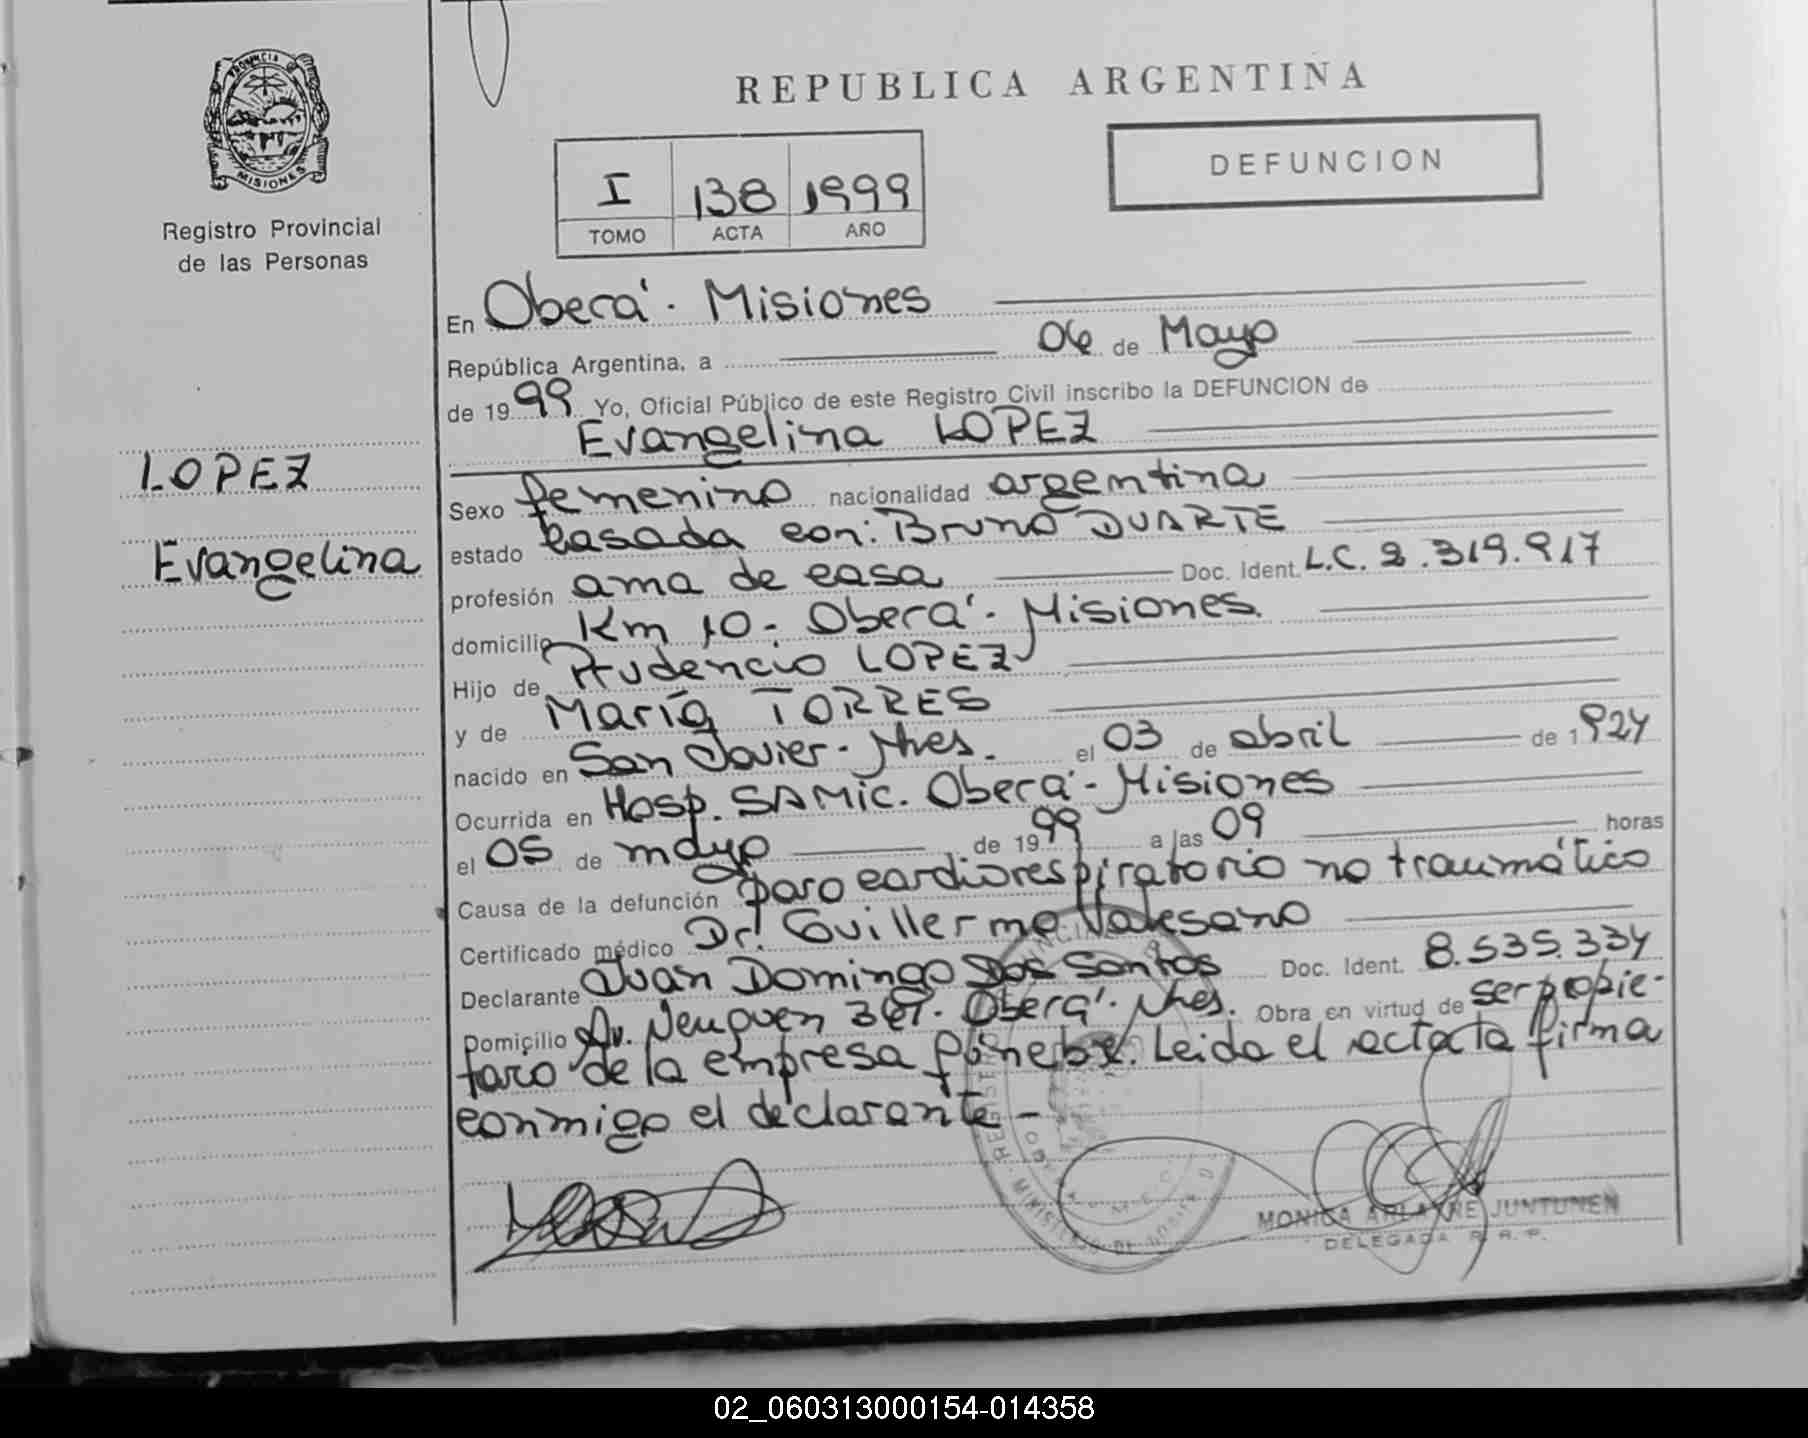 PROVINCIA D
MISIONES
Registro Provincial
de las Personas
LOPEZ
Evangelina
REPUBLICA ARGENTINA
I 138 1999
TOMO ACTA AÑO
DEFUNCION
En Oberá - Misiones
República Argentina, a 06 de Mayo
de 1999 Yo, Oficial Público de este Registro Civil inscribo la DEFUNCION de
Evangelina LOPEZ
Sexo femenino nacionalidad argentina
estado casada con: Bruno DUARTE
profesión ama de casa Doc. Ident. L.C. 2.319.917
domicilio Km 10 - Oberá - Misiones.
Hijo de Prudencio LOPEZ
y de María TORRES
nacido en San Javier - Mnes. el 03 de abril de 1924
Ocurrida en Hosp. SAMIC. Oberá - Misiones
el 05 de mayo de 1999 a las 09 horas
Causa de la defunción paro cardiorespiratorio no traumático
Certificado médico Dr. Guillermo Valesano
Declarante Juan Domingo Dos Santos Doc. Ident. 8.535.334
Domicilio Av. Neuquen Oberá - Mnes. Obra en virtud de ser propie-
tario de la empresa fúnebre. Leida el acta la firma
conmigo el declarante -
MONICA JUNTUNEN
DELEGADA R. R. P.
02_060313000154-014358